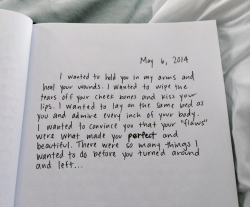 May 6, 2014
I wanted to hold you in my arms and
heal your wounds. I wanted to wipe the
tears off your cheek bones and kiss your
lips. I wanted to lay on the same bed as
you and admire every inch of your body.
I wanted to convince you that your "flaws"
were what made you perfect and
beautiful. There were so many things I
wanted to do before you turned around
and left...